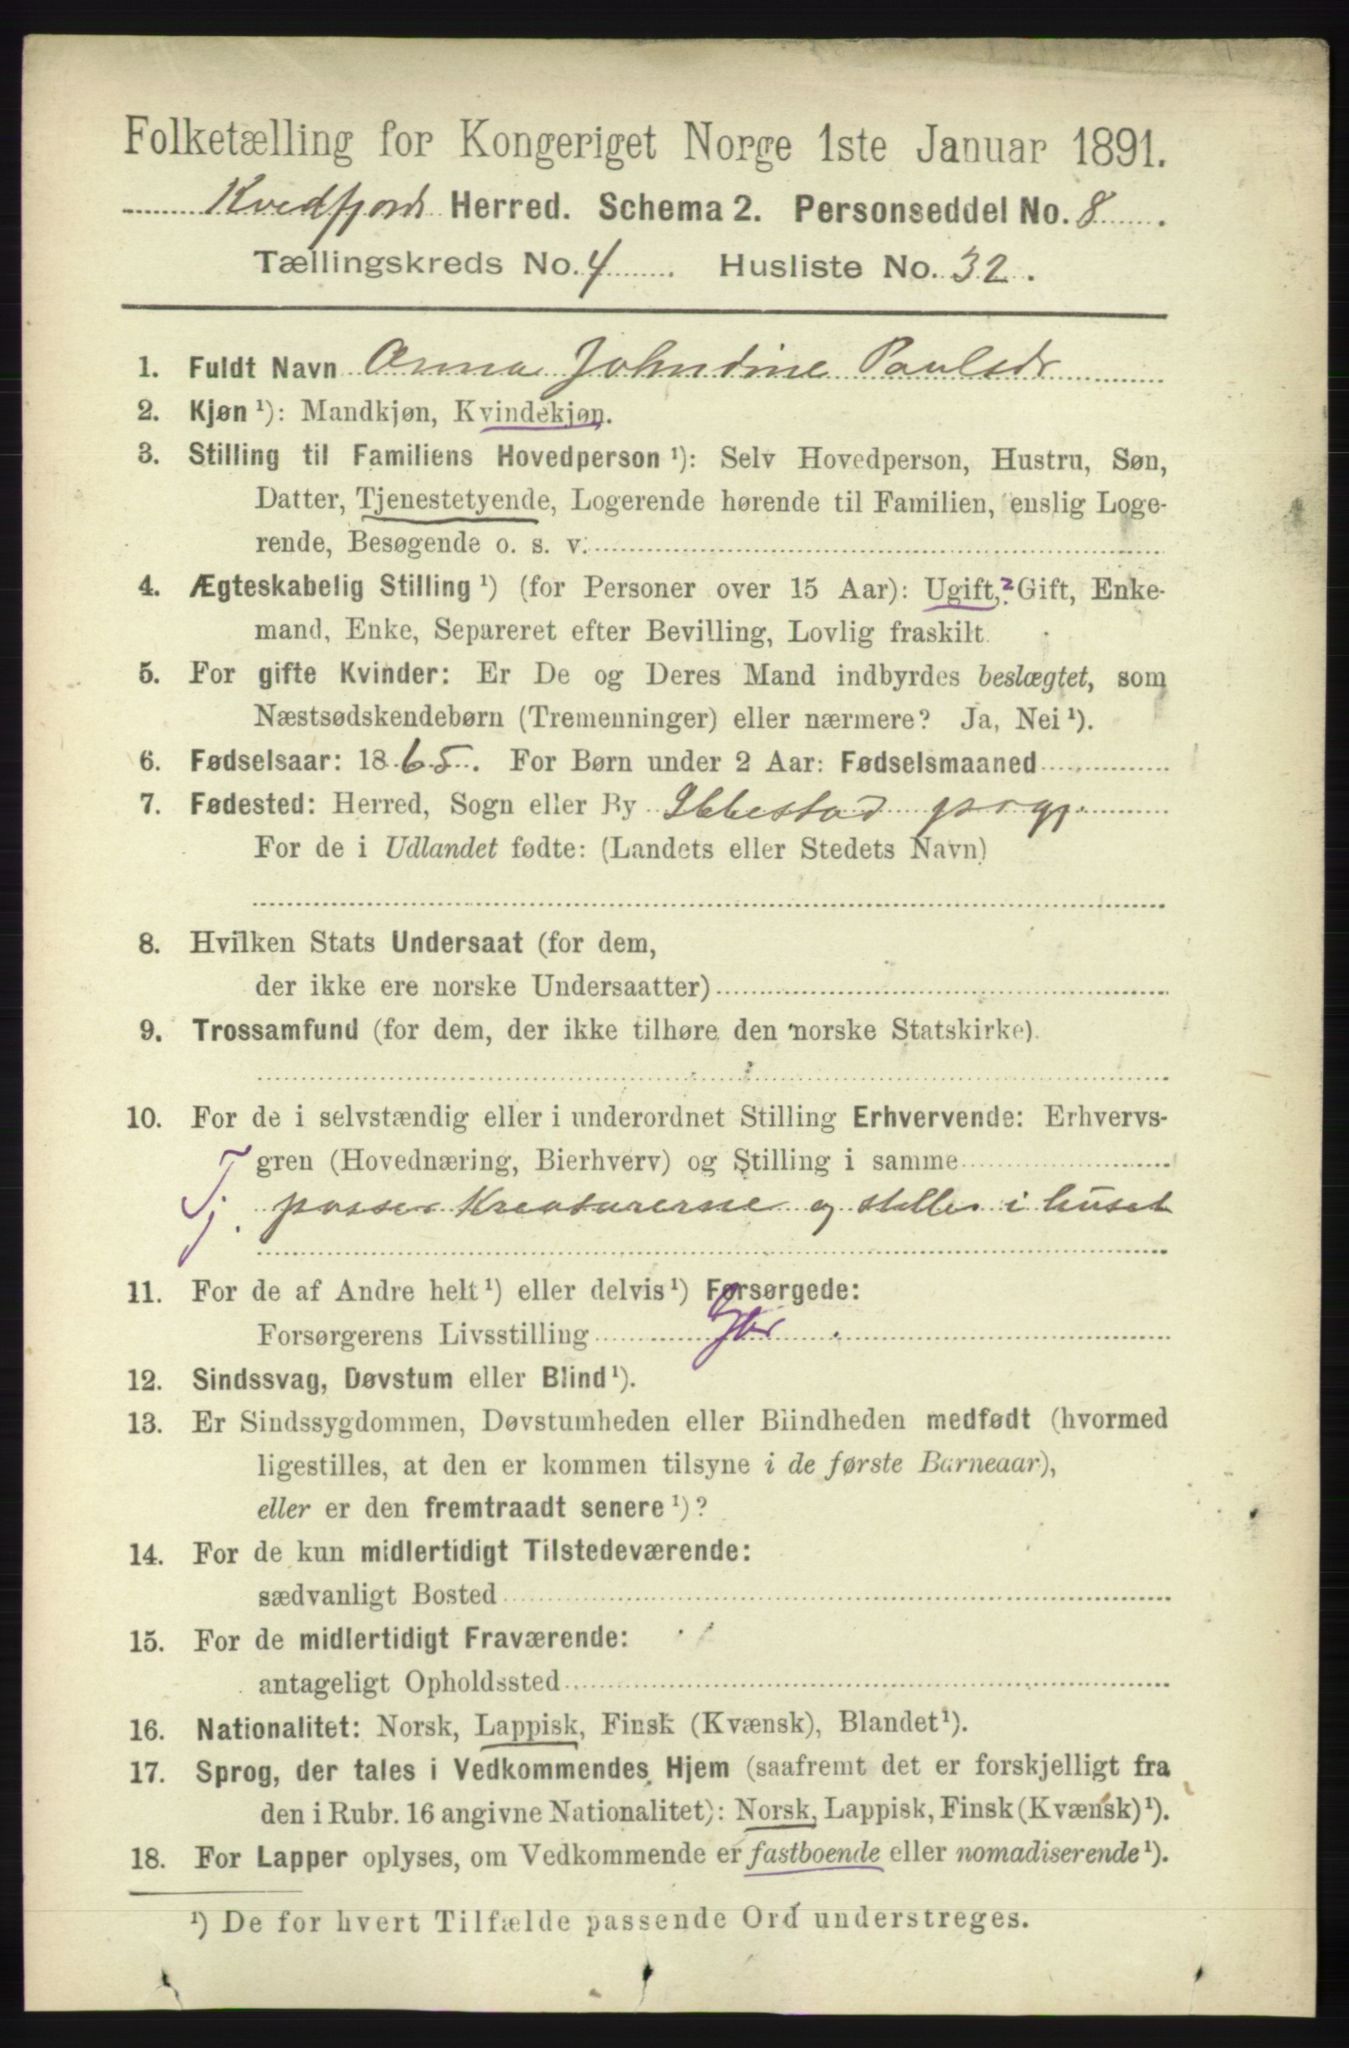 Folketælling for Kongeriget Norge 1ste Januar 1891.
Kvedfjord Herred. Schema 2. Personseddel No. 8.
Tællingskreds No. 4. Husliste No. 32.
1. Fuldt Navn Anna Johndine Paulsdr
2. Kjøn ¹): Mandkjøn, Kvindekjøn.
3. Stilling til Familiens Hovedperson ¹): Selv Hovedperson, Hustru, Søn,
Datter, Tjenestetyende, Logerende hørende til Familien, enslig Loge-
rende, Besøgende o. s. v.
4. Ægteskabelig Stilling ¹) (for Personer over 15 Aar): Ugift, ² Gift, Enke-
mand, Enke, Separeret efter Bevilling, Lovlig fraskilt.
5. For gifte Kvinder: Er De og Deres Mand indbyrdes beslægtet, som
Næstsødskendebørn (Tremenninger) eller nærmere? Ja, Nei ¹).
6. Fødselsaar: 1865. For Børn under 2 Aar: Fødselsmaaned
7. Fødested: Herred, Sogn eller By Ibbestad prgj.
For de i Udlandet fødte: (Landets eller Stedets Navn)
8. Hvilken Stats Undersaat (for dem,
der ikke ere norske Undersaatter)
9. Trossamfund (for dem, der ikke tilhøre den norske Statskirke)
10. For de i selvstændig eller i underordnet Stilling Erhvervende: Erhvervs-
gren (Hovednæring, Bierhverv) og Stilling i samme
Tj. passer Kreaturerne og steller i huset
11. For de af Andre helt ¹) eller delvis ¹) Forsørgede:
Forsørgerens Livsstilling Gbr.
12. Sindssvag, Døvstum eller Blind ¹).
13. Er Sindssygdommen, Døvstumheden eller Blindheden medfødt (hvormed
ligestilles, at den er kommen tilsyne i de første Barneaar),
eller er den fremtraadt senere ¹)?
14. For de kun midlertidigt Tilstedeværende:
sædvanligt Bosted
15. For de midlertidigt Fraværende:
antageligt Opholdssted
16. Nationalitet: Norsk, Lappisk, Finsk (Kvænsk), Blandet ¹).
17. Sprog, der tales i Vedkommendes Hjem (saafremt det er forskjelligt fra
den i Rubr. 16 angivne Nationalitet): Norsk, Lappisk, Finsk (Kvænsk) ¹).
18. For Lapper oplyses, om Vedkommende er fastboende eller nomadiserende ¹).
¹) De for hvert Tilfælde passende Ord understreges.